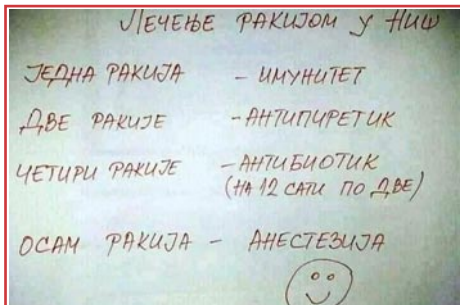 ЛЕЧЕЊЕ РАКИЈОМ У НИШ
ЈЕДНА РАКИЈА - ИМУНИТЕТ
ДВЕ РАКИЈЕ - АНТИПИРЕТИК
ЧЕТИРИ РАКИЈЕ - АНТИБИОТИК
(НА 12 САТИ ПО ДВЕ)
ОСАМ РАКИЈА - АНЕСТЕЗИЈА